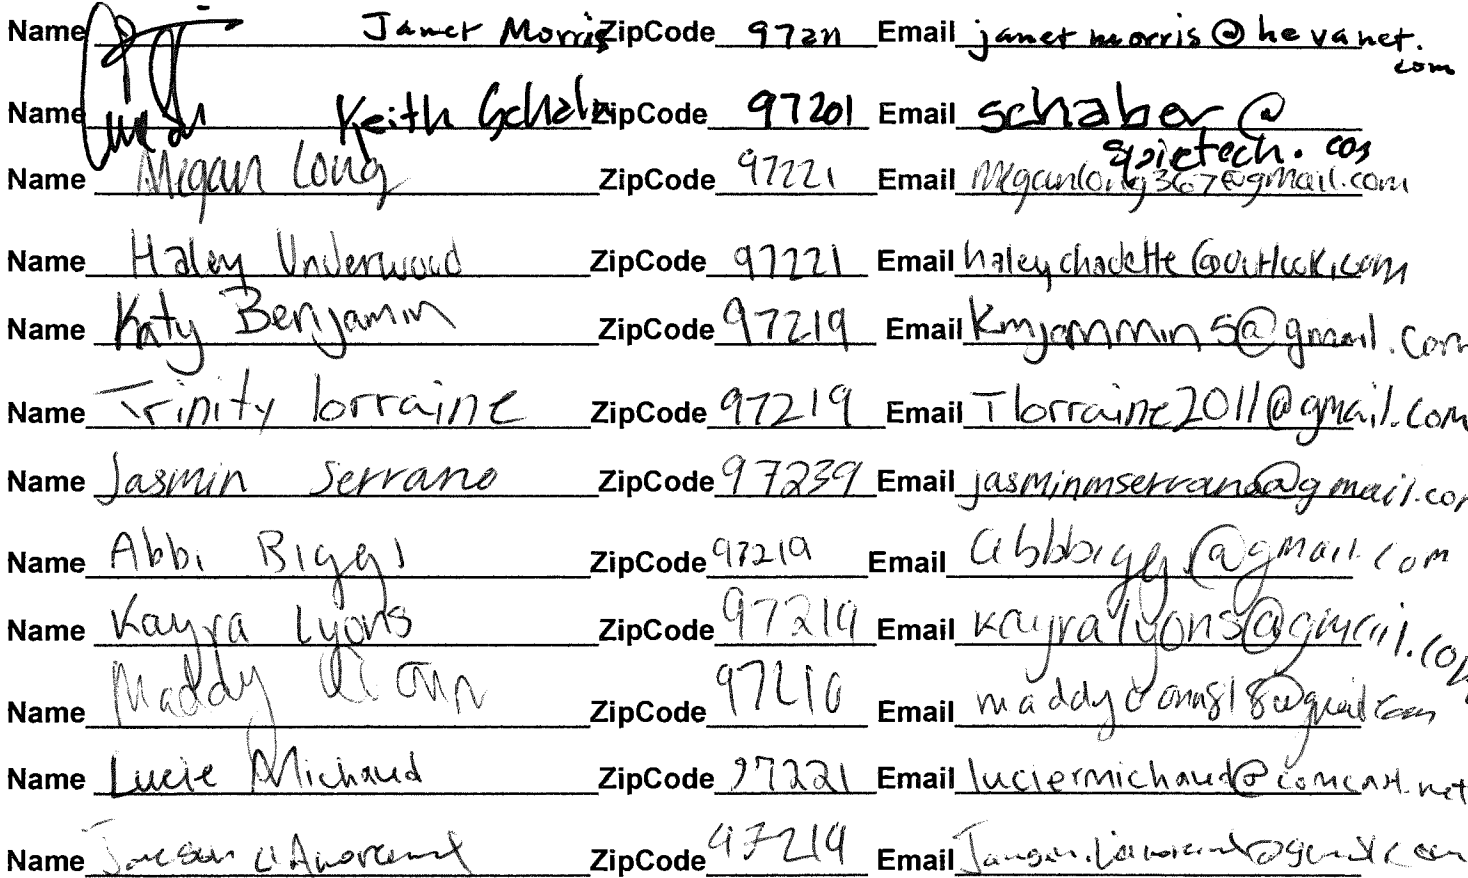 Name Janet Morris ZipCode 97211 Email janetmorris@hevanet.
com
Name Keith Schaber ZipCode 97201 Email schaber@
Name Megan Long ZipCode 97221 Email meganlong367@gmail.com
Name Haley Underwood ZipCode 97221 Email haleychadette@outlook.com
Name Katy Benjamin ZipCode 97219 Email Kmjammin5@gmail.com
Name Trinity lorraine ZipCode 97219 Email Tlorraine2011@gmail.com
Name Jasmin Serrano ZipCode 97239 Email jasminmserrano@gmail.com
Name Abbi Biggi ZipCode 97219 Email abbbigg.@gmail.com
Name Kayra Lyons ZipCode 97219 Email kayralyons@gmail.com
Name Maddy ZipCode 97210 Email
Name Lucie Michaud ZipCode 97221 Email luciermichaud@comcast.net
Name ZipCode 97219 Email